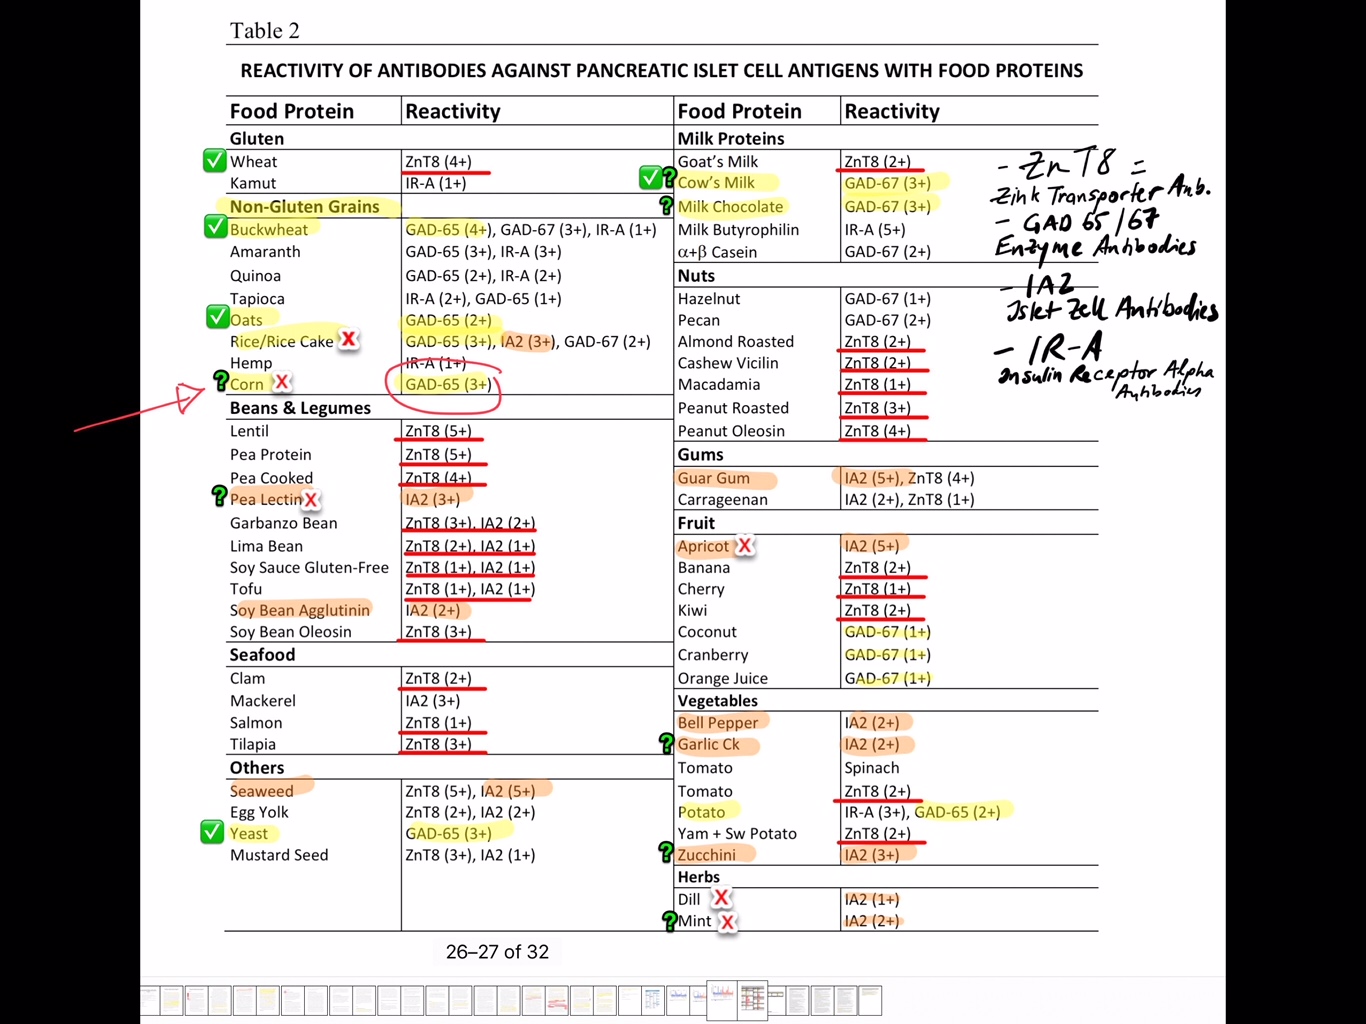 Table 2
REACTIVITY OF ANTIBODIES AGAINST PANCREATIC ISLET CELL ANTIGENS WITH FOOD PROTEINS
Food Protein Reactivity
Gluten
Wheat ZnT8 (4+)
Kamut IR-A (1+)
Non-Gluten Grains
Buckwheat GAD-65 (4+), GAD-67 (3+), IR-A (1+)
Amaranth GAD-65 (3+), IR-A (3+)
Quinoa GAD-65 (2+), IR-A (2+)
Tapioca IR-A (2+), GAD-65 (1+)
Oats GAD-65 (2+)
Rice/Rice Cake X GAD-65 (3+), IA2 (3+), GAD-67 (2+)
Hemp IR-A (1+)
? Corn X GAD-65 (3+)
Beans & Legumes
Lentil ZnT8 (5+)
Pea Protein ZnT8 (5+)
Pea Cooked ZnT8 (4+)
? Pea Lectin X IA2 (3+)
Garbanzo Bean ZnT8 (3+), IA2 (2+)
Lima Bean ZnT8 (2+), IA2 (1+)
Soy Sauce Gluten-Free ZnT8 (1+), IA2 (1+)
Tofu ZnT8 (1+), IA2 (1+)
Soy Bean Agglutinin IA2 (2+)
Soy Bean Oleosin ZnT8 (3+)
Seafood
Clam ZnT8 (2+)
Mackerel IA2 (3+)
Salmon ZnT8 (1+)
Tilapia ZnT8 (3+)
Others
Seaweed ZnT8 (5+), IA2 (5+)
Egg Yolk ZnT8 (2+), IA2 (2+)
Yeast GAD-65 (3+)
Mustard Seed ZnT8 (3+), IA2 (1+)
Food Protein Reactivity
Milk Proteins
Goat's Milk ZnT8 (2+)
? Cow's Milk GAD-67 (3+)
? Milk Chocolate GAD-67 (3+)
Milk Butyrophilin IR-A (5+)
α+β Casein GAD-67 (2+)
Nuts
Hazelnut GAD-67 (1+)
Pecan GAD-67 (2+)
Almond Roasted ZnT8 (2+)
Cashew Vicilin ZnT8 (2+)
Macadamia ZnT8 (1+)
Peanut Roasted ZnT8 (3+)
Peanut Oleosin ZnT8 (4+)
Gums
Guar Gum IA2 (5+), ZnT8 (4+)
Carrageenan IA2 (2+), ZnT8 (1+)
Fruit
Apricot X IA2 (5+)
Banana ZnT8 (2+)
Cherry ZnT8 (1+)
Kiwi ZnT8 (2+)
Coconut GAD-67 (1+)
Cranberry GAD-67 (1+)
Orange Juice GAD-67 (1+)
Vegetables
Bell Pepper IA2 (2+)
? Garlic Ck IA2 (2+)
Tomato Spinach
Tomato ZnT8 (2+)
Potato IR-A (3+), GAD-65 (2+)
Yam + Sw Potato ZnT8 (2+)
? Zucchini IA2 (3+)
Herbs
Dill X IA2 (1+)
? Mint X IA2 (2+)
- ZnT8 =
Zink Transporter Anb.
- GAD 65/67
Enzyme Antibodies
- IA2
Islet Zell Antibodies
- IR-A
Insulin Receptor Alpha
Antibodies
26–27 of 32